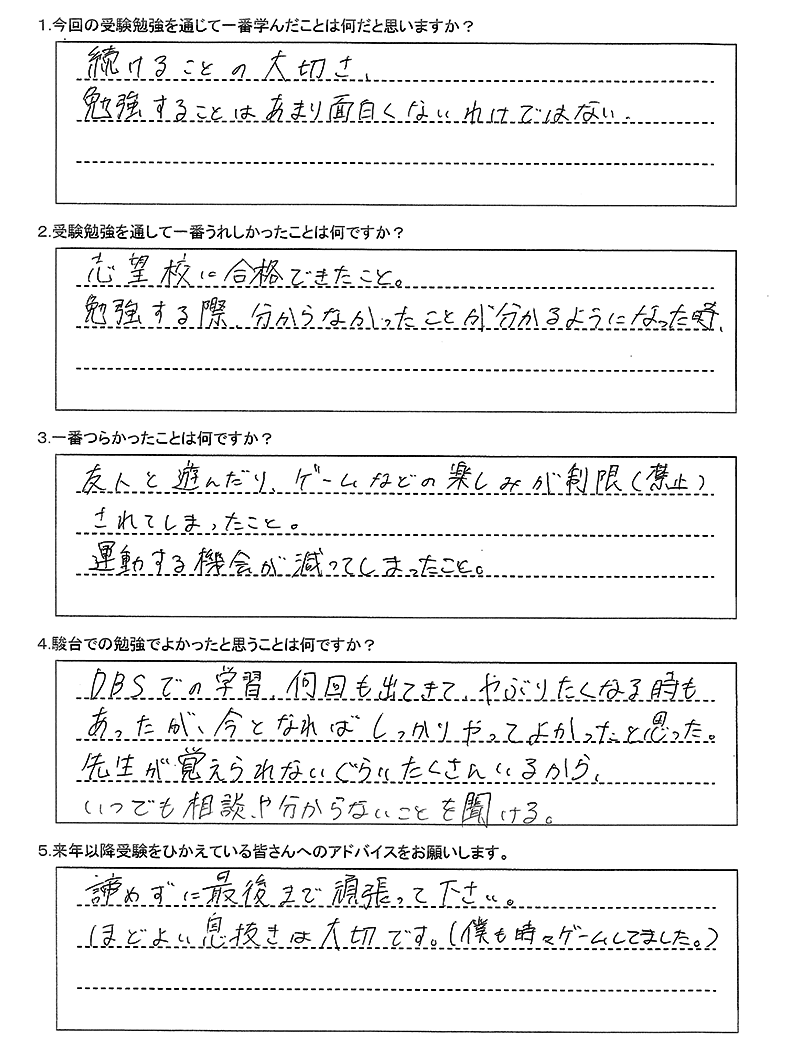 1.今回の受験勉強を通じて一番学んだことは何だと思いますか？
続けることの大切さ、
勉強することはあまり面白くないわけではない.
2.受験勉強を通して一番うれしかったことは何ですか？
志望校に合格できたこと。
勉強する際、分からなかったことが分かるようになった時、
3.一番つらかったことは何ですか？
友人と遊んだり、ゲームなどの楽しみが制限(禁止)
されてしまったこと。
運動する機会が減ってしまったこと。
4.駿台での勉強でよかったと思うことは何ですか？
DBSでの学習、何回も出てきて、やぶりたくなる時も
あったが、今となればしっかりやってよかったと思った。
先生が覚えられないぐらいたくさんいるから、
いつでも相談や分からないことを聞ける。
5.来年以降受験をひかえている皆さんへのアドバイスをお願いします。
諦めずに最後まで頑張って下さい。
ほどよい息抜きは大切です。(僕も時々ゲームしてました。)